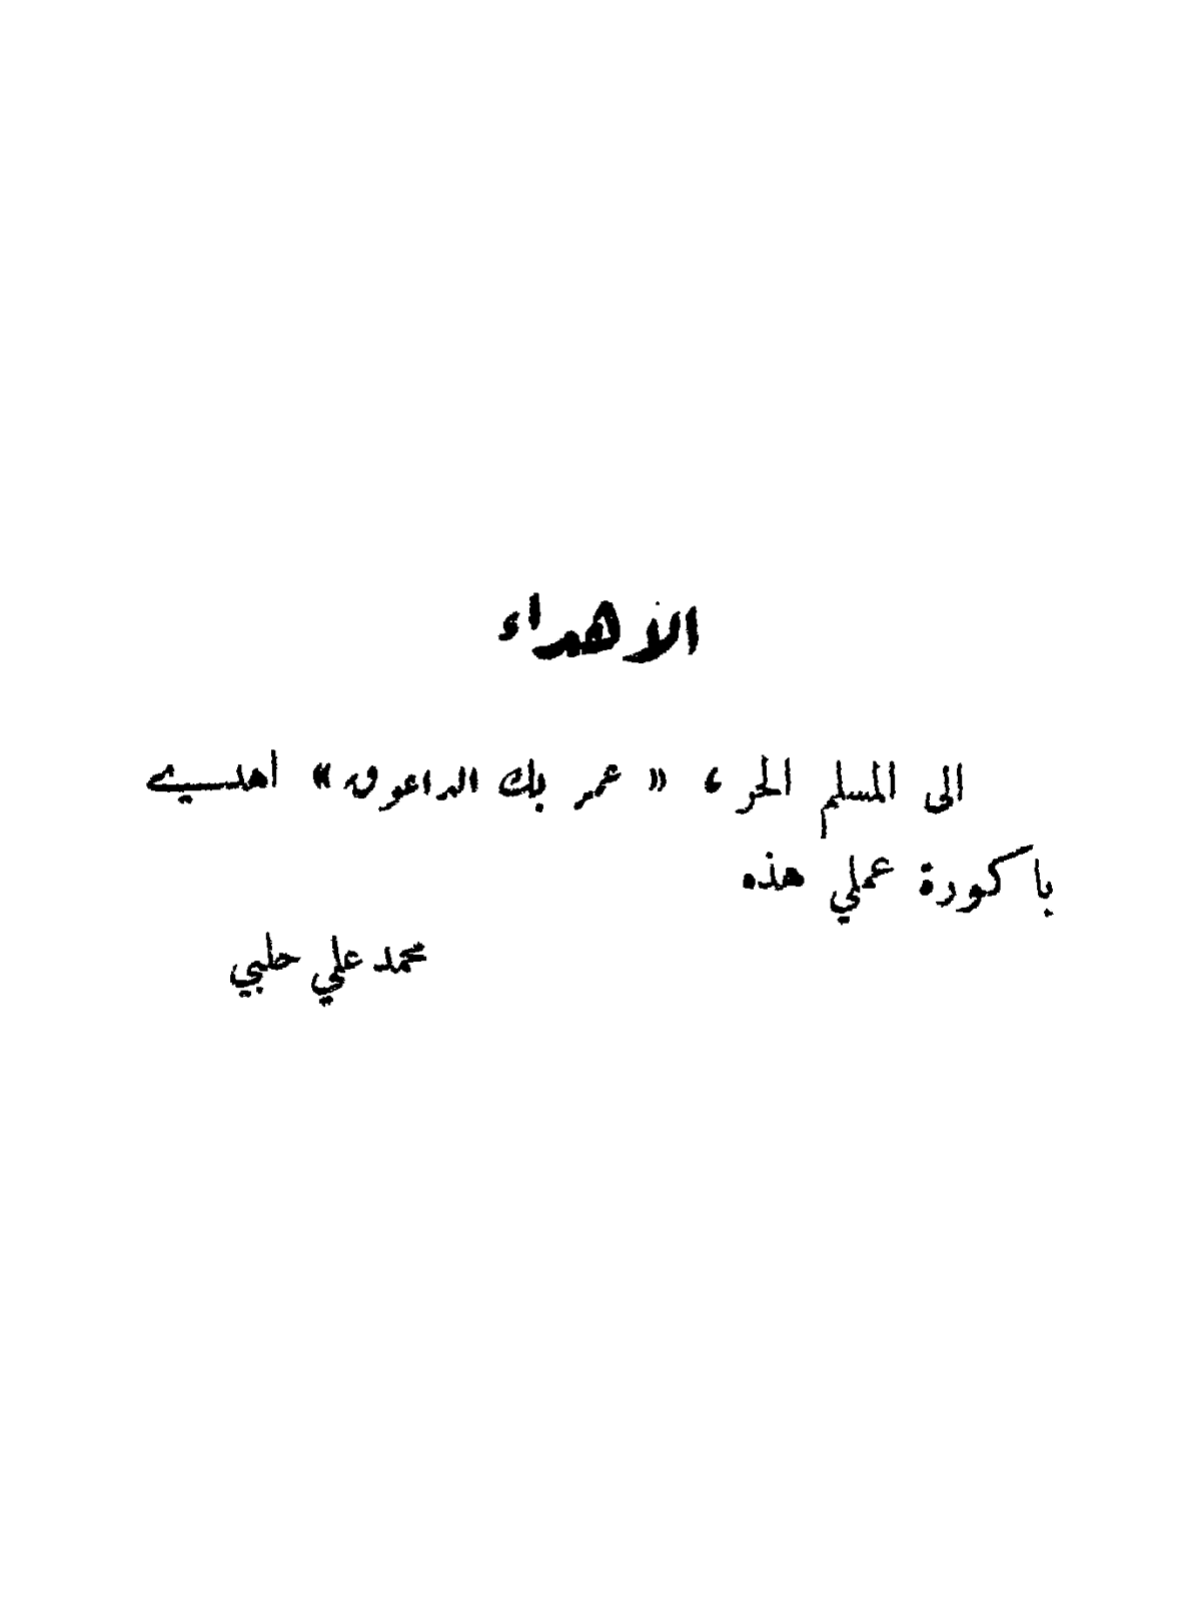 الاهداء
الى المسلم الحر ، « عمر بك الداعوق » اهدي
باكورة عملي هذه
محمد علي حلبي